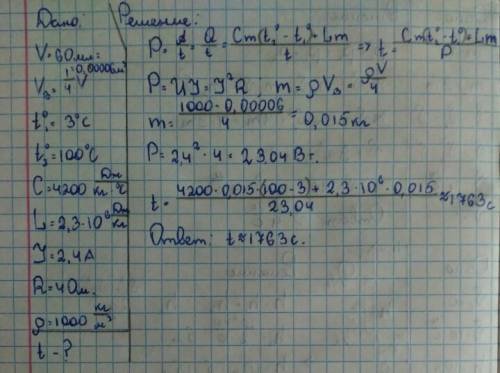 Дано:
V=60мл=
=0,00006м³
V₃=1/4 V
t₁°=3°C
t₂°=100°C
C=4200 Дж/кг·°C
L=2,3·10⁶ Дж/кг
J=2,4A
R=4Ом
ρ=1000 кг/м³
t-?
Решение:
P=A/t=Q/t=(Cm(t₂°-t₁°)+Lm)/t => t=(Cm(t₂°-t₁°)+Lm)/P
P=UJ=J²R, m=ρV₃=ρV/4
m=(1000·0,00006)/4=0,015кг
P=2,4²·4=23,04 Вт.
t=(4200·0,015·(100-3)+2,3·10⁶·0,015)/23,04≈1763с
Ответ: t≈1763с.